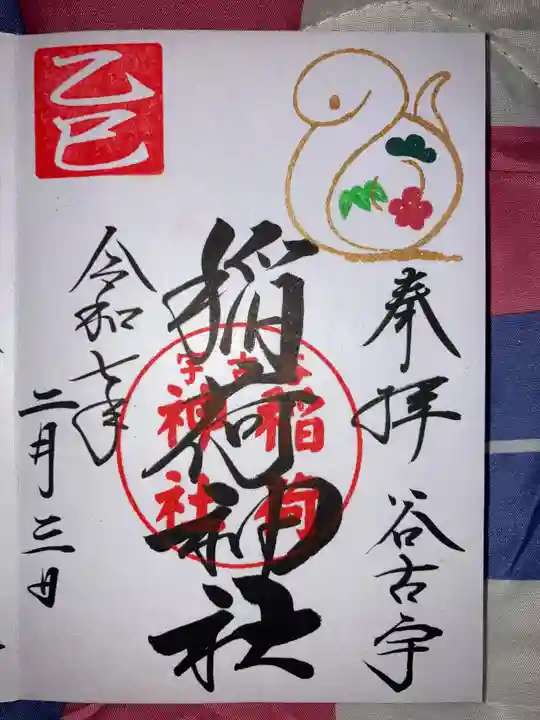 奉拝 谷古宇
稲荷神社
稲荷
神社
令和七年
二月三日
乙巳